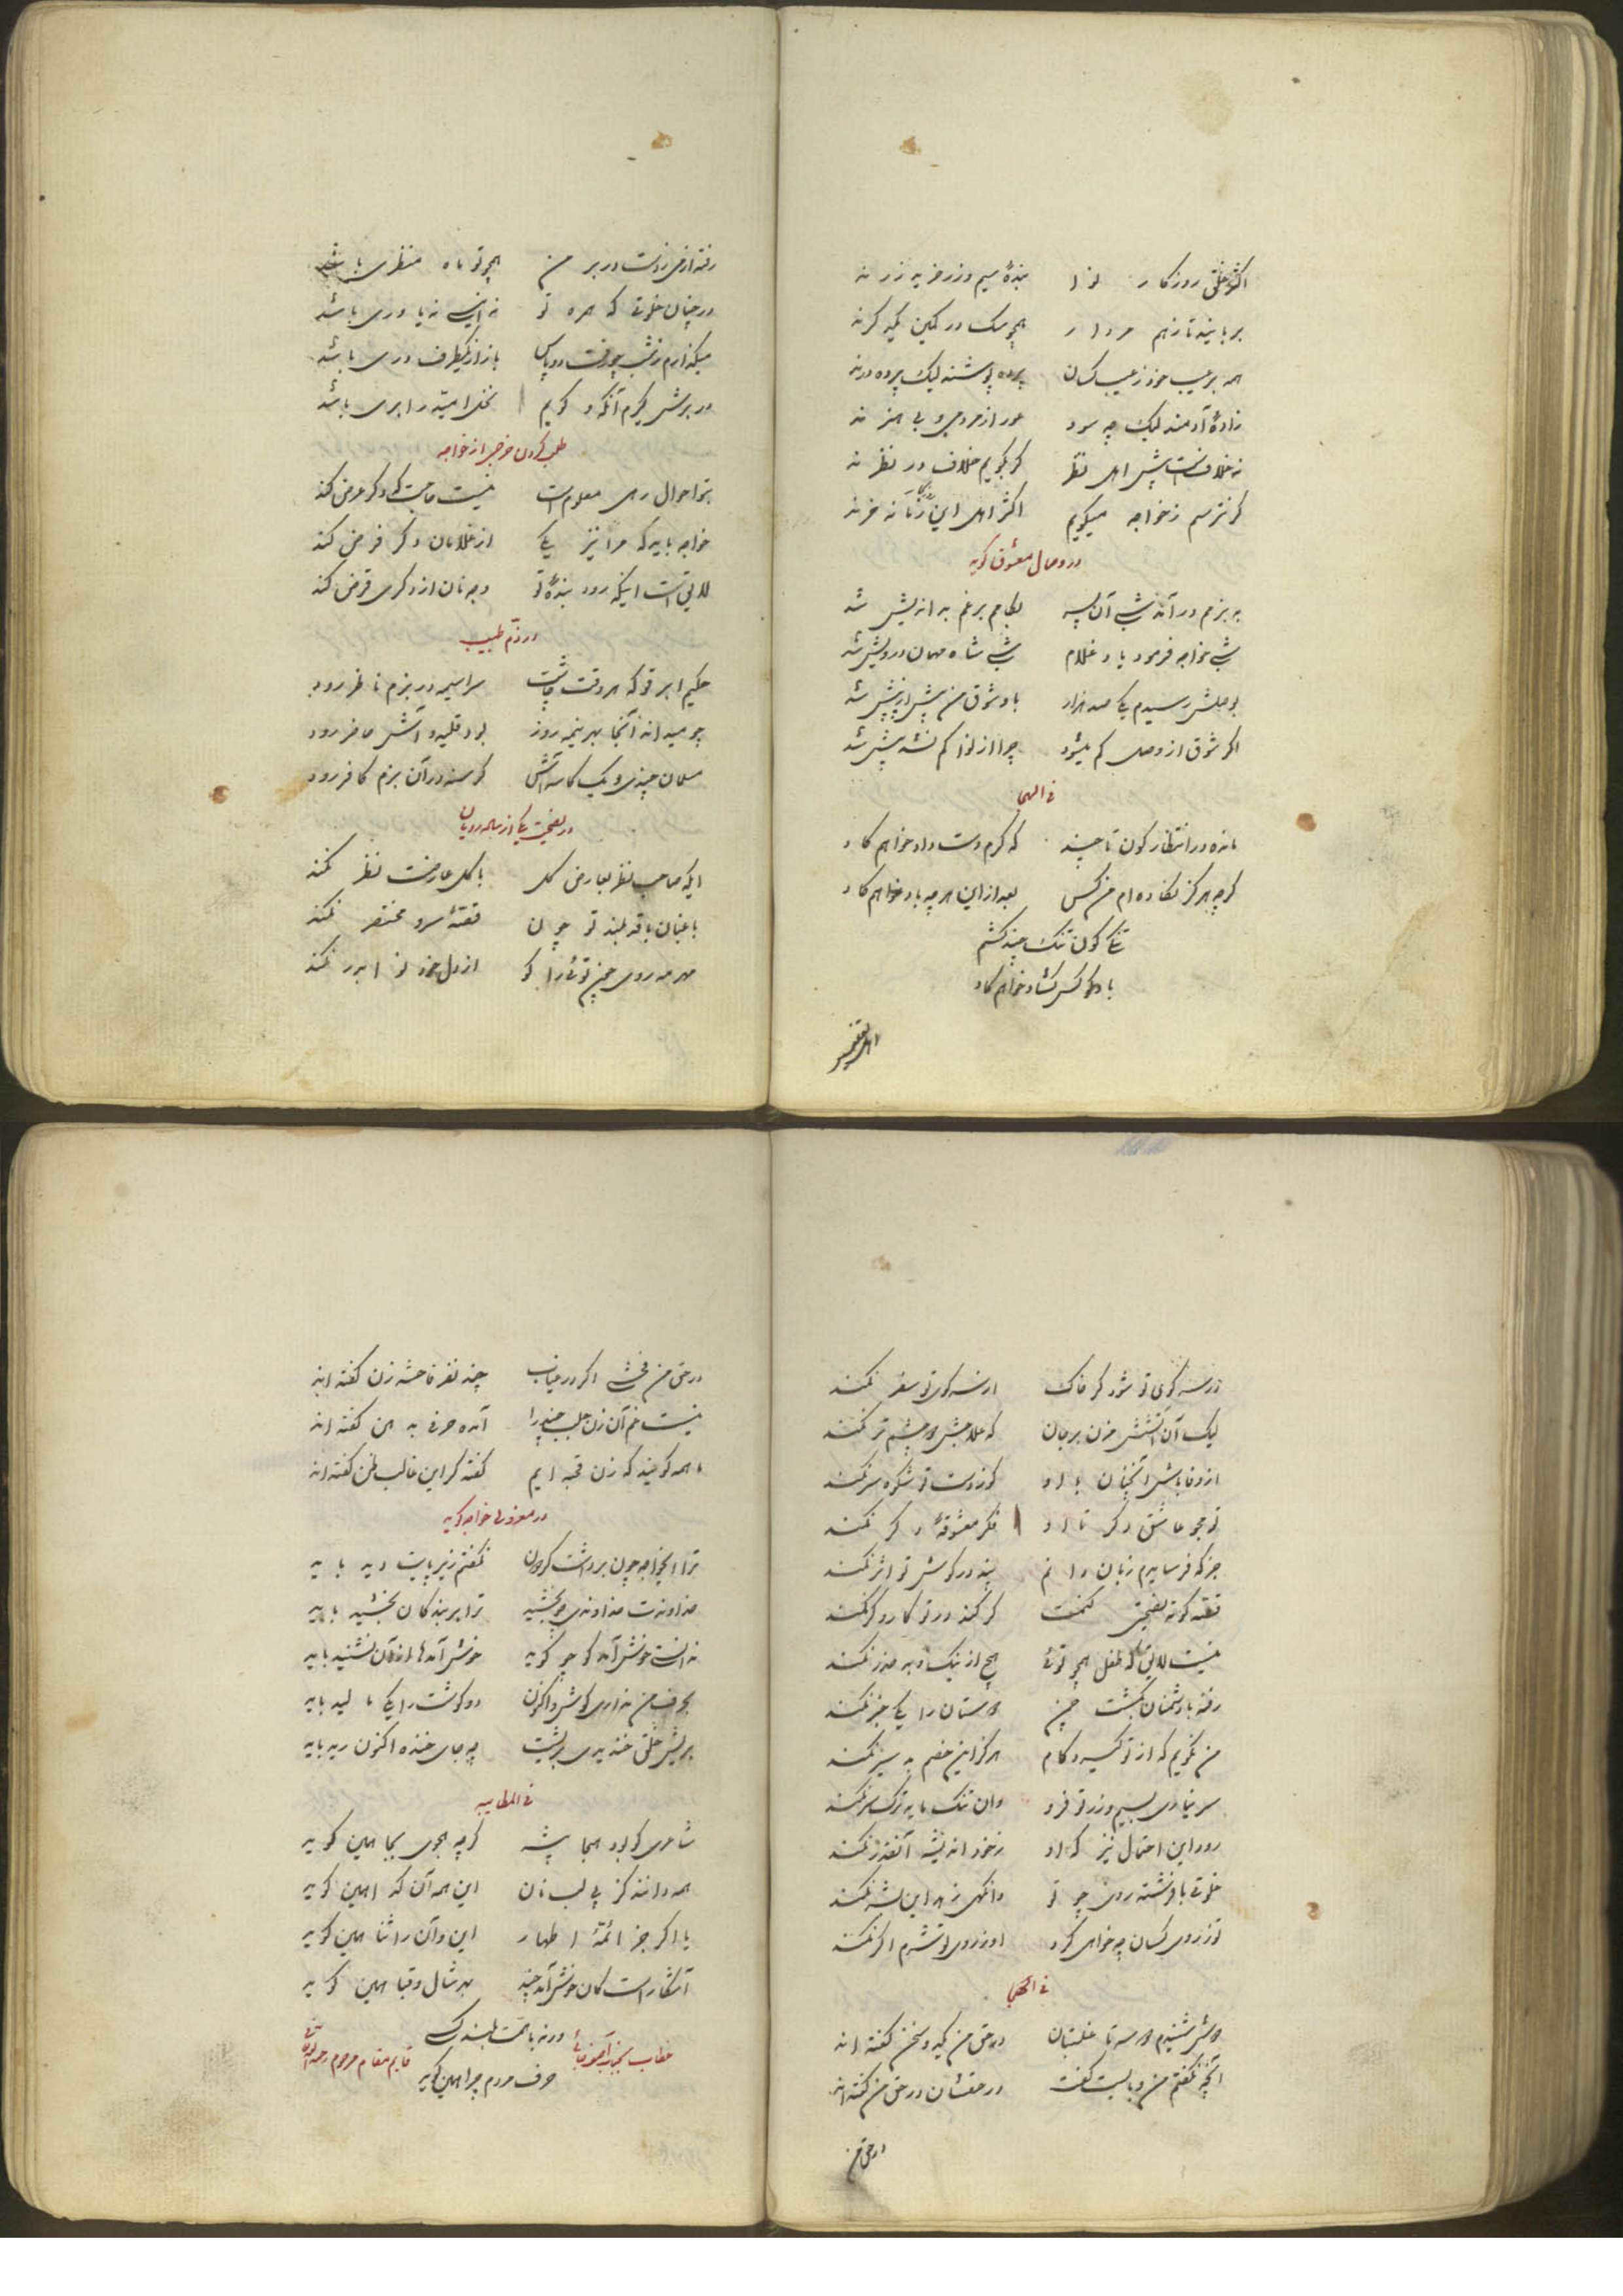 اکثر خلق روزکار نوا بندهٔ سیم و زر خریه زر ند
بربایند تا زهم مردار همچو سک در کمین یکدکرند
همه بر عیب خود ز عیب کسان پرده پوشند لیک پرده درند
زادهٔ آدمند لیک چه سود عور از مردمی و بی هنر ند
نه خلافست پیش اهل نظر کر بکویم خلاف در نظر ند
کر نترسم ز خواجه میکویم اکثر اهل این زمانه خرند
در وصال معشوق کوید
به بزمم در آمد شبی آن پسر بکامم برغم بد اندیش شد
شبی خواجه فرمود یاد غلام شبی شاه مهمان درویش شد
بوصلش رسیدم یکی صد هزار باو شوق من پیش از پیش شد
اکر شوق از وصل کم میشود چرا از نوا کم نشد بیش شد
فی الهجا
مانده در انتظار کون تا چند که کرم دست داد خواهم کاد
کرچه هرکز نکاده ام من کس بعد از این هرچه باد خواهم کاد
تنکی کون تنک چند کشم
باد کو کس کشاد خواهم کاد
رفته از من ز دست در بر من همچو تو ماه منظری باشد
در چنان خلوتی که همره تو نه انیسی نه یاوری باشد
میکذارم ز شب چو رفت دو پاس باز از یکطرف دری باشد
در برش کیرم آنکه و کویم نخل امید را بری باشد
طلب کردن خرجی از خواجه
بتو احوال رهی معلومست نیست حاجت که دکر عرض کند
خواجه باید که مرا نیز یکی از غلامان دکر فرض کند
لایق است اینکه رود بندهٔ تو وجه نان از دکری قرض کند
در ذم طبیب
حکیم ابرقو که هر وقت چاشت سراسیمه در بزم ناظر رود
چو میداند آنجا بهر نیمه روز بود قلیه و آش حاضر رود
مسلمان چندی و یک کاسه آش کرسنه در آن بزم کافر رود
در نصیحت یکی از ساده رویان
ایکه صاحب نظر بعارض کل با کل عارضت نظر نکند
باغبان با قد بلند تو چون قصهٔ سرو مختصر نکند
مهر مه روی چون توئی را کو از دل خود نوا بدر نکند
ور سر کوی تو شود کر خاک از سر کوی تو سفر نکند
لیک آن آتشش مزن بر جان که علاجش دو چشم تر نکند
از وفا باش آنچنان با او کو ز دست تو شکوه سر نکند
تو مجو عاشق دکر تا او فکر معشوقهٔ دکر نکند
جز که فرسایدم زبان دانم پند در کوش تو اثر نکند
قصه کوته نصیحتی کنمت کر کند در تو کار و کر نکند
نیست لایق که طفل همچو توئی هیچ از نیک و بد حذر نکند
رفته با دشمنان بکشت چمن دوستان را یکی خبر نکند
من نکویم که از تو کیرد کام هرکز این خصم بد سیر نکند
سر نیاری بسیم و زر تو فرو وان تنک مایه ترک سر نکند
رود این احتمال نیز که او ز خود اندیشه آنقدر نکند
خلوتی با فرشته روئی چو تو وانکهی زهد این بشر نکند
تو ز روی کسان چه خواهی کرد او ز روی تو شرم اکر نکند
فی الهجا
دوش شنیدم دو سه تا غلتبان در حق من یکدو سخن کفته اند
آنچه نکفتم من و بایست کفت در حقشان در حق من کفته اند
در حق من فحشی اکر در غیاب چند نفر فاحشه زن کفته اند
نیست غم آن زن جلب چند را آمده حرفی به دهن کفته اند
همه کویند که زن قحبه ایم کفته کر این غالب ظن کفته اند
در معزولی خواجه کوید
ترا ایخواجه چون برداشت کردون نکفتم زیر پایت دید باید
خداوندت خداوندی چو بخشید ترا بر بندکان بخشید باید
نه آنست خوش آمد کو چو کوید خوش آمدها از آن نشنید باید
بحرف من نداری کوش و اکنون دو کوشت را یکی مالید باید
بریش خلق خندیدی بریشت به جای خنده اکنون رید باید
فی المطایبه
شاعری کو بود هجا پیشه کرچه هجوی بجا همین کوید
همه دانند کز پی لب نان این همه آن کدا همین کوید
یا اکر جز ائمهٔ اطهار این و آن را ثنا همین کوید
آشکار است کان خوش آمد چند بهر شال و قبا همین کوید
ورنه با همت بلند رکیک
حرف مردم چرا همین کوید
خطاب بجناب آصف جاهی
قایم مقام مرحوم رحمه الله
در حق من